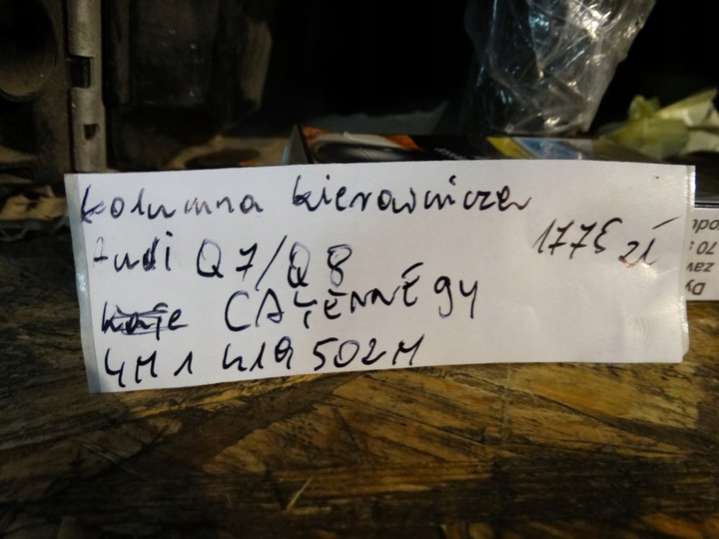 kolumna kierownicza
Audi Q7/Q8
1775 zł
CAYENNE 9Y
4M1 419 502M